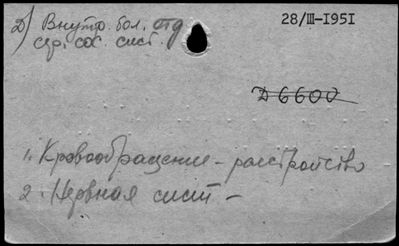 Д) Внутр. бол. отд
сер. сос. сист.
28/III-1951
Д 6600
1. Кровообращение - расстройство
2. Нервная сист -